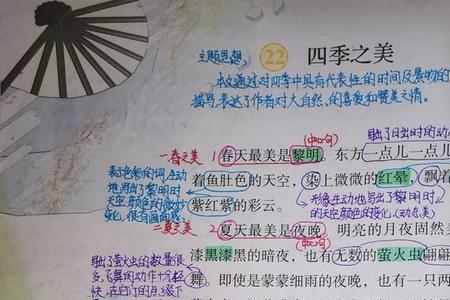 主题思想
22 四季之美
本文通过对四季中具有代表性的时间及景物的
描写,表达了作者对大自然的喜爱和赞美之情。
(中心句)
一春之美 1 春天最美是黎明。东方一点儿一点儿
表示色彩的词,生动
地写出了黎明时
天空颜色的
着鱼肚色的天空,染上微微的红晕,飘着
形象生动地写出了黎明时
的天空颜色的变化,(动态美)
紫红紫的彩云。
二夏之美 2 夏天最美是夜晚。明亮的月夜固然美
(中心句)
写出了萤火虫的数量很
多
漆黑漆黑的暗夜,也有无数的萤火虫翩翩
舞。即使是蒙蒙细雨的夜晚,也有一只两